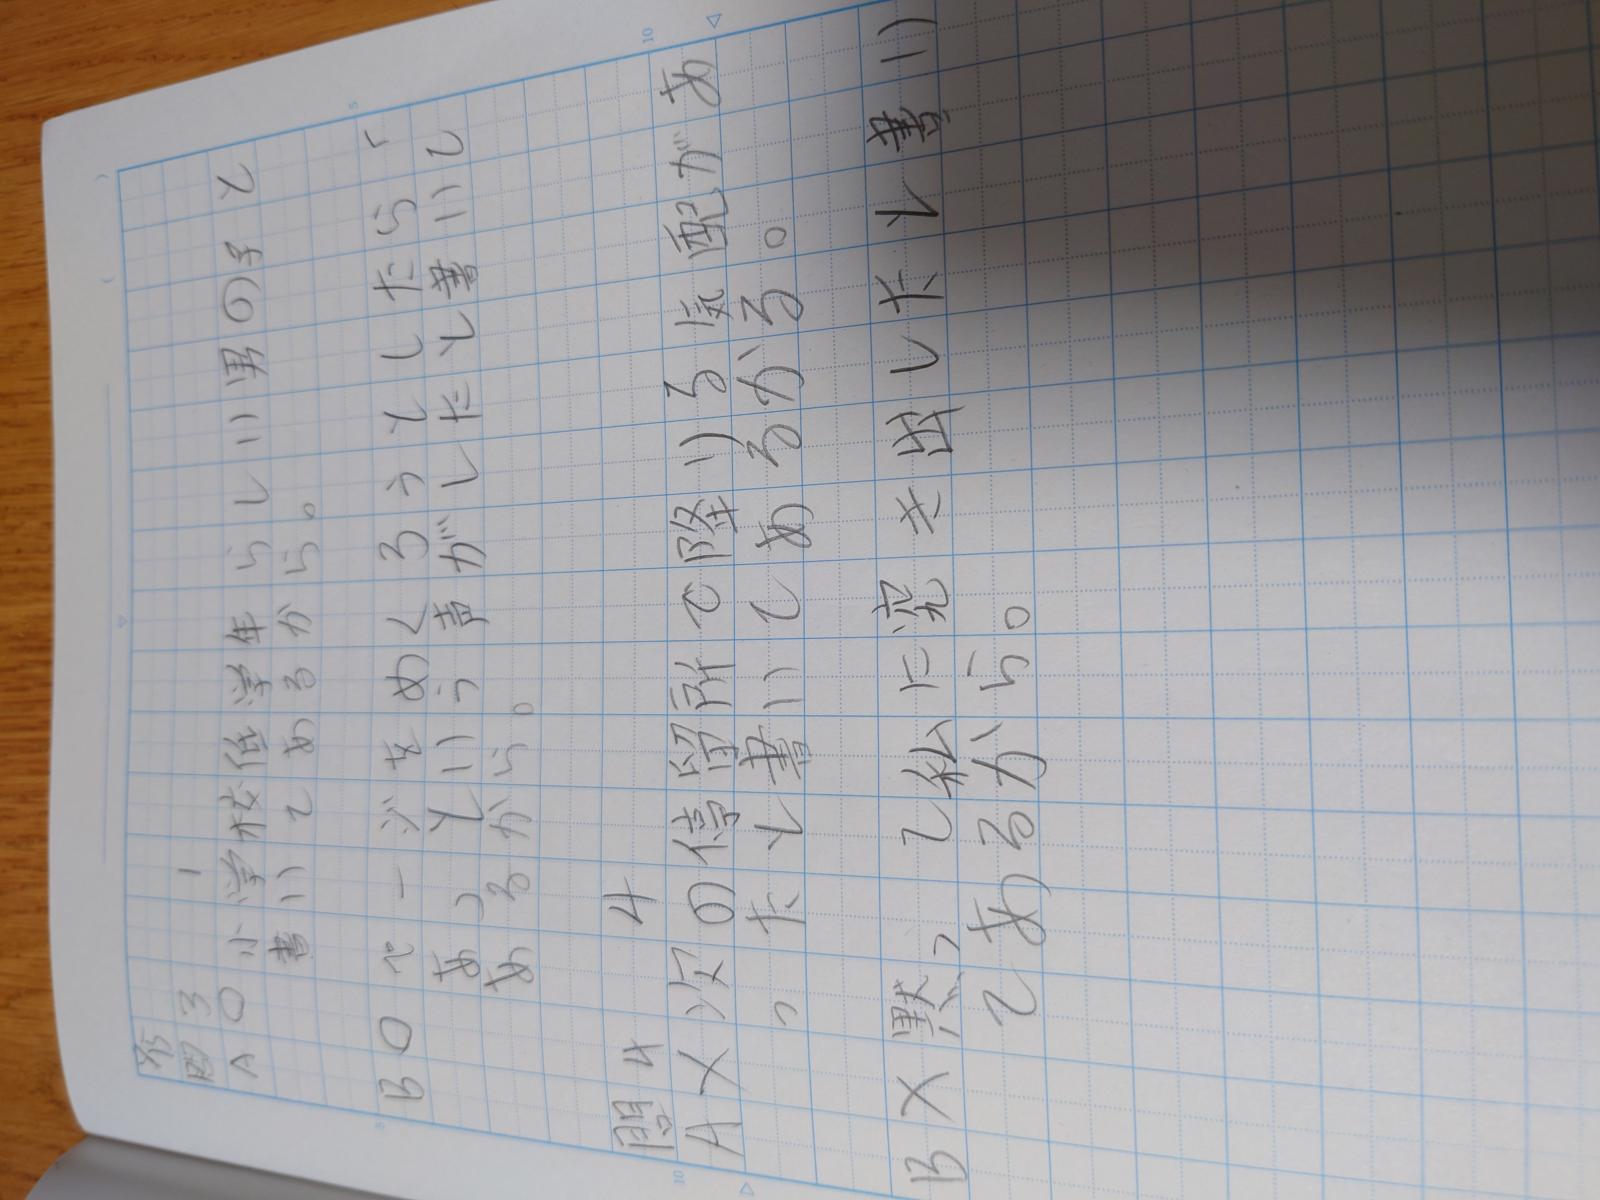 問3 1
A○小学校低学年らしい男の子と
書いてあるから。
B○ページをめくろうとしたら「
あっという声がしたと書いて
あるから。
問4 4
A×次の停留所で降りる気配があ
ったと書いてあるかる。
B×黙って私に突き出したと書い
てあるから。